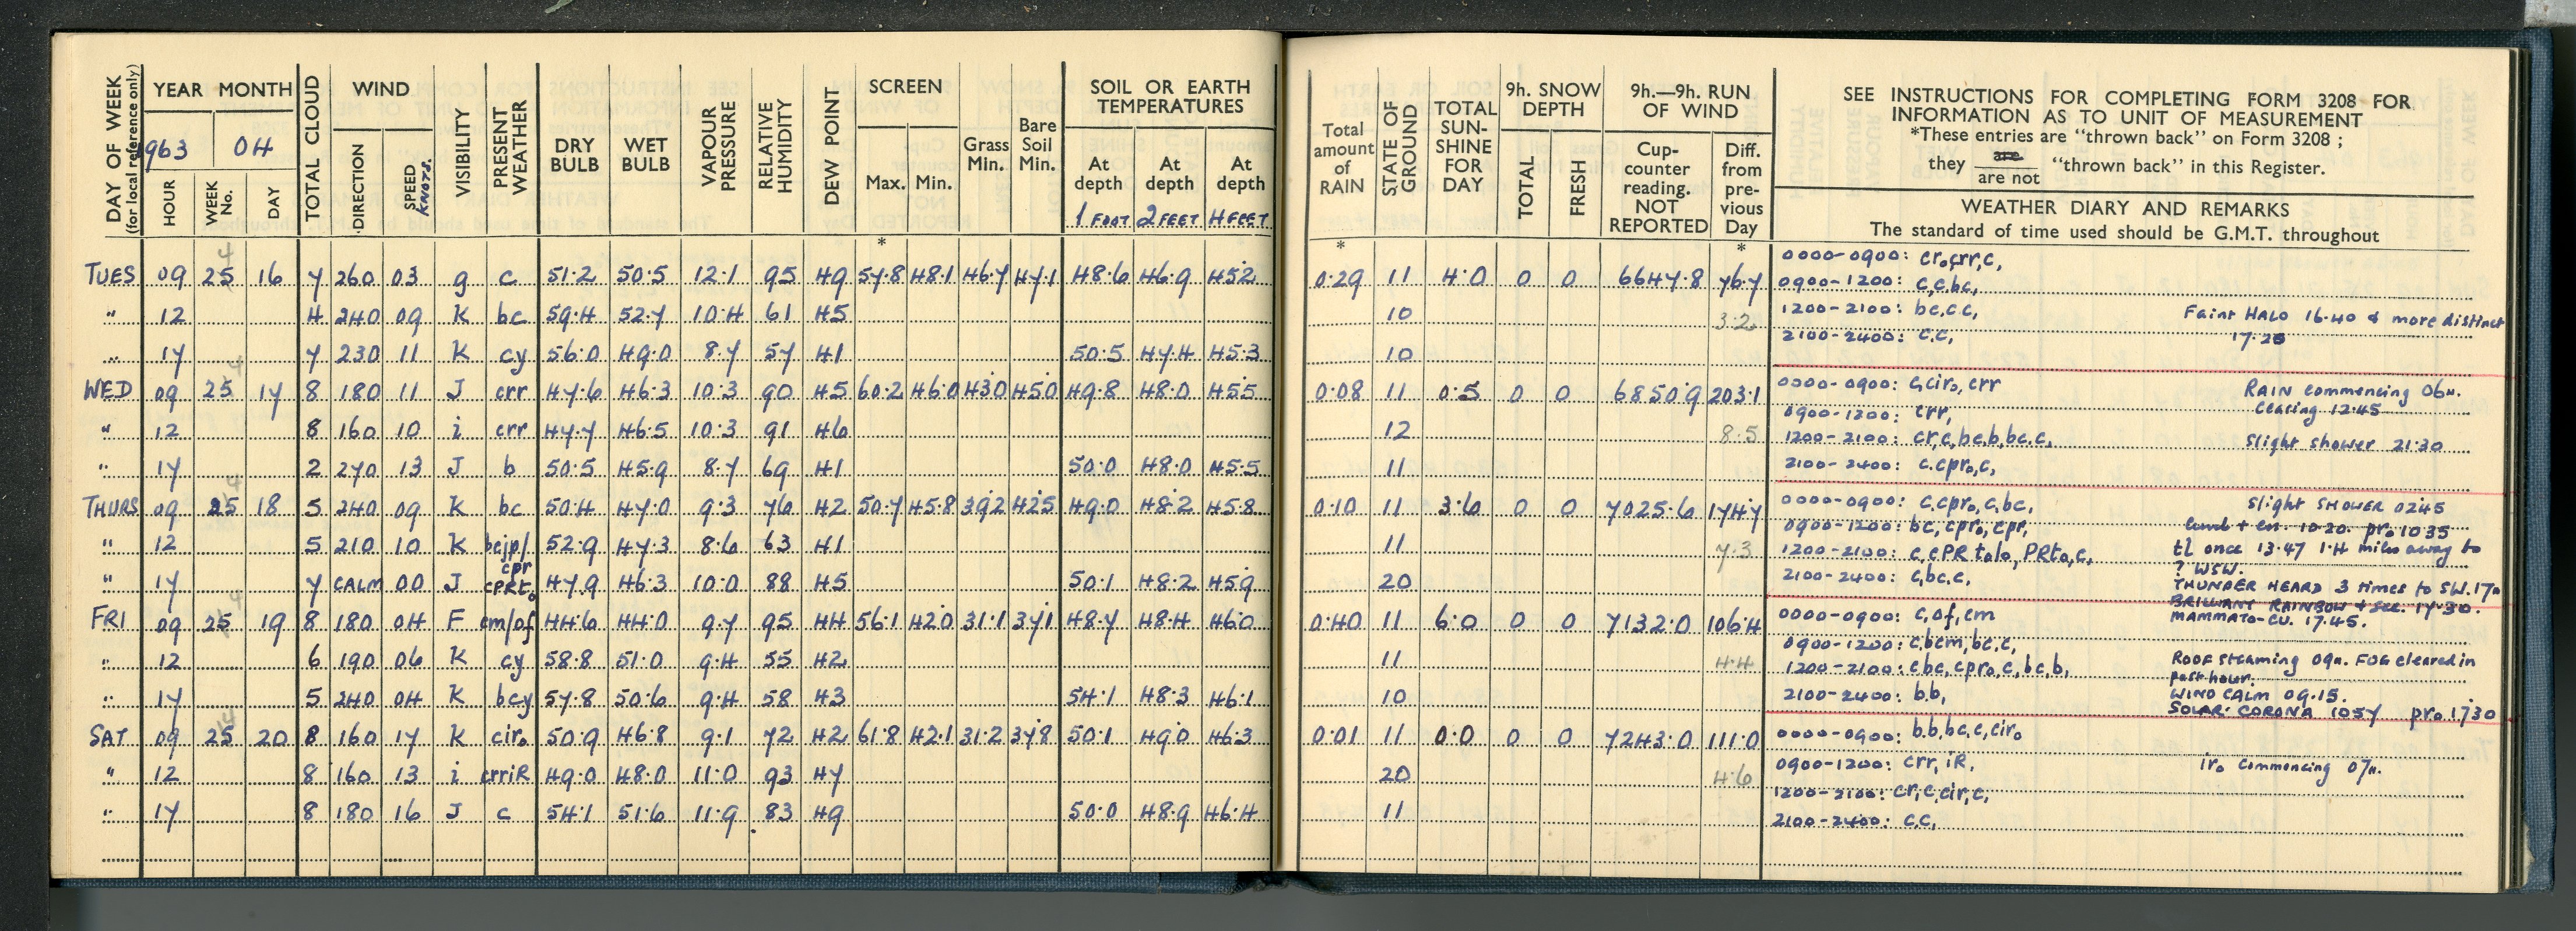 DAY OF WEEK
(for local reference only)
YEAR MONTH
963 04
HOUR WEEK No. DAY
TOTAL CLOUD
WIND
DIRECTION SPEED KNOTS.
VISIBILITY
PRESENT WEATHER
DRY BULB
WET BULB
VAPOUR PRESSURE
RELATIVE HUMIDITY
DEW POINT
SCREEN
Max. Min.
Grass Min.
Bare Soil Min.
SOIL OR EARTH TEMPERATURES
At depth At depth At depth
1 FOOT 2 FEET 4 FEET
Total amount of RAIN
STATE OF GROUND
TOTAL SUN-SHINE FOR DAY
9h. SNOW DEPTH
TOTAL FRESH
9h.—9h. RUN OF WIND
Cup-counter reading. NOT REPORTED
Diff. from pre-vious Day
SEE INSTRUCTIONS FOR COMPLETING FORM 3208 FOR
INFORMATION AS TO UNIT OF MEASUREMENT
*These entries are "thrown back" on Form 3208 ;
they are / are not "thrown back" in this Register.
WEATHER DIARY AND REMARKS
The standard of time used should be G.M.T. throughout
* * *
TUES 09 25 4 16 7 260 03 g c 51.2 50.5 12.1 95 49 57.8 48.1 46.7 47.1 48.6 46.9 45.2 0.29 11 4.0 0 0 6647.8 76.7
" 12 4 240 09 K bc 59.4 52.7 10.4 61 45 10 3.2
" 17 7 230 11 K cy 56.0 49.0 8.7 57 41 50.5 47.4 45.3 10
WED 09 25 4 17 8 180 11 J crr 47.6 46.3 10.3 90 45 60.2 46.0 43.0 45.0 49.8 48.0 45.5 0.08 11 0.5 0 0 6850.9 203.1
" 12 8 160 10 i crr 47.7 46.5 10.3 91 46 12 8.5
" 17 2 270 13 J b 50.5 45.9 8.7 69 41 50.0 48.0 45.5 11
THURS 09 25 4 18 5 240 09 K bc 50.4 47.0 9.3 76 42 50.7 45.8 39.2 42.5 49.0 48.2 45.8 0.10 11 3.6 0 0 7025.6 174.7
" 12 5 210 10 K bcjp/cpr 52.9 47.3 8.6 63 41 11 7.3
" 17 7 CALM 00 J cPRto 47.9 46.3 10.0 88 45 50.1 48.2 45.9 20
FRI 09 25 4 19 8 180 04 F cm/of 44.6 44.0 9.7 95 44 56.1 42.0 31.1 37.1 48.7 48.4 46.0 0.40 11 6.0 0 0 7132.0 106.4
" 12 6 190 06 K cy 58.8 51.0 9.4 55 42 11 4.4
" 17 5 240 04 K bcy 57.8 50.6 9.4 58 43 54.1 48.3 46.1 10
SAT 09 25 4 20 8 160 17 K ciro 50.9 46.8 9.1 72 42 61.8 42.1 31.2 37.8 50.1 49.0 46.3 0.01 11 0.0 0 0 7243.0 111.0
" 12 8 160 13 i crriR 49.0 48.0 11.0 93 47 20 4.6
" 17 8 180 16 J c 54.1 51.6 11.9 83 49 50.0 48.9 46.4 11
0000-0900: cro,crr,c,
0900-1200: c,c,bc,
1200-2100: bc,c,c, Faint HALO 16.40 & more distinct
2100-2400: c.c, 17.20
0000-0900: c,ciro, crr RAIN commencing 06h.
0900-1200: crr, Clearing 12.45
1200-2100: cr,c,bc,b,bc,c, Slight shower 21.30
2100-2400: c.cpro,c,
0000-0900: c.cpro,c,bc, Slight SHOWER 0245
0900-1200: bc, cpro, cpr, 10.20. pro 1035
1200-2100: c,cPR talo, PRto,c, tl once 13.47 1.4 miles away to
? WSW.
2100-2400: c,bc,c, THUNDER HEARD 3 times to SW. 17h
BRILLIANT RAINBOW + sec. 17.30
0000-0900: c,of,cm MAMMATO-CU. 17.45.
0900-1200: c,bcm,bc,c,
1200-2100: cbc,cpro,c,bc,b, ROOF STEAMING 09h. FOG cleared in
past hour.
2100-2400: b.b, WIND CALM 09.15.
SOLAR CORONA 1057 pro 1730
0000-0900: b.b,bc,c,ciro
0900-1200: crr, iR, iro commencing 07h.
1200-2100: cr,c,cir,c,
2100-2400: c.c,